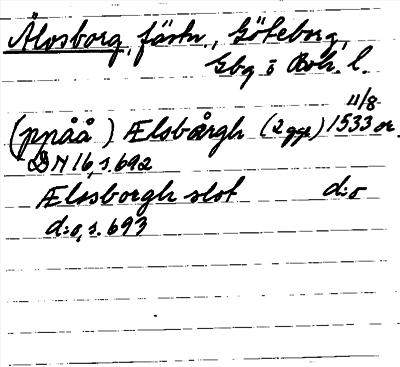 Älvsborg, fästn., Göteborg,
Gbg o Boh. l.
(pp åå) Ælsbårgh (2 ggr) 11/8 1533 or.
DN 16, s. 692
Ælssborgh slot d:o
d:o, s. 693